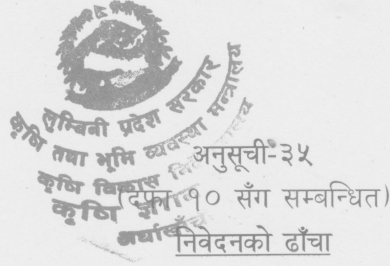 लुम्बिनी प्रदेश सरकार
कृषि तथा भूमि व्यवस्था मन्त्रालय
कृषि विकास
कृषि ज्ञान
अर्घाखाँची
अनुसूची-३५
(दफा १० सँग सम्बन्धित)
निवेदनको ढाँचा